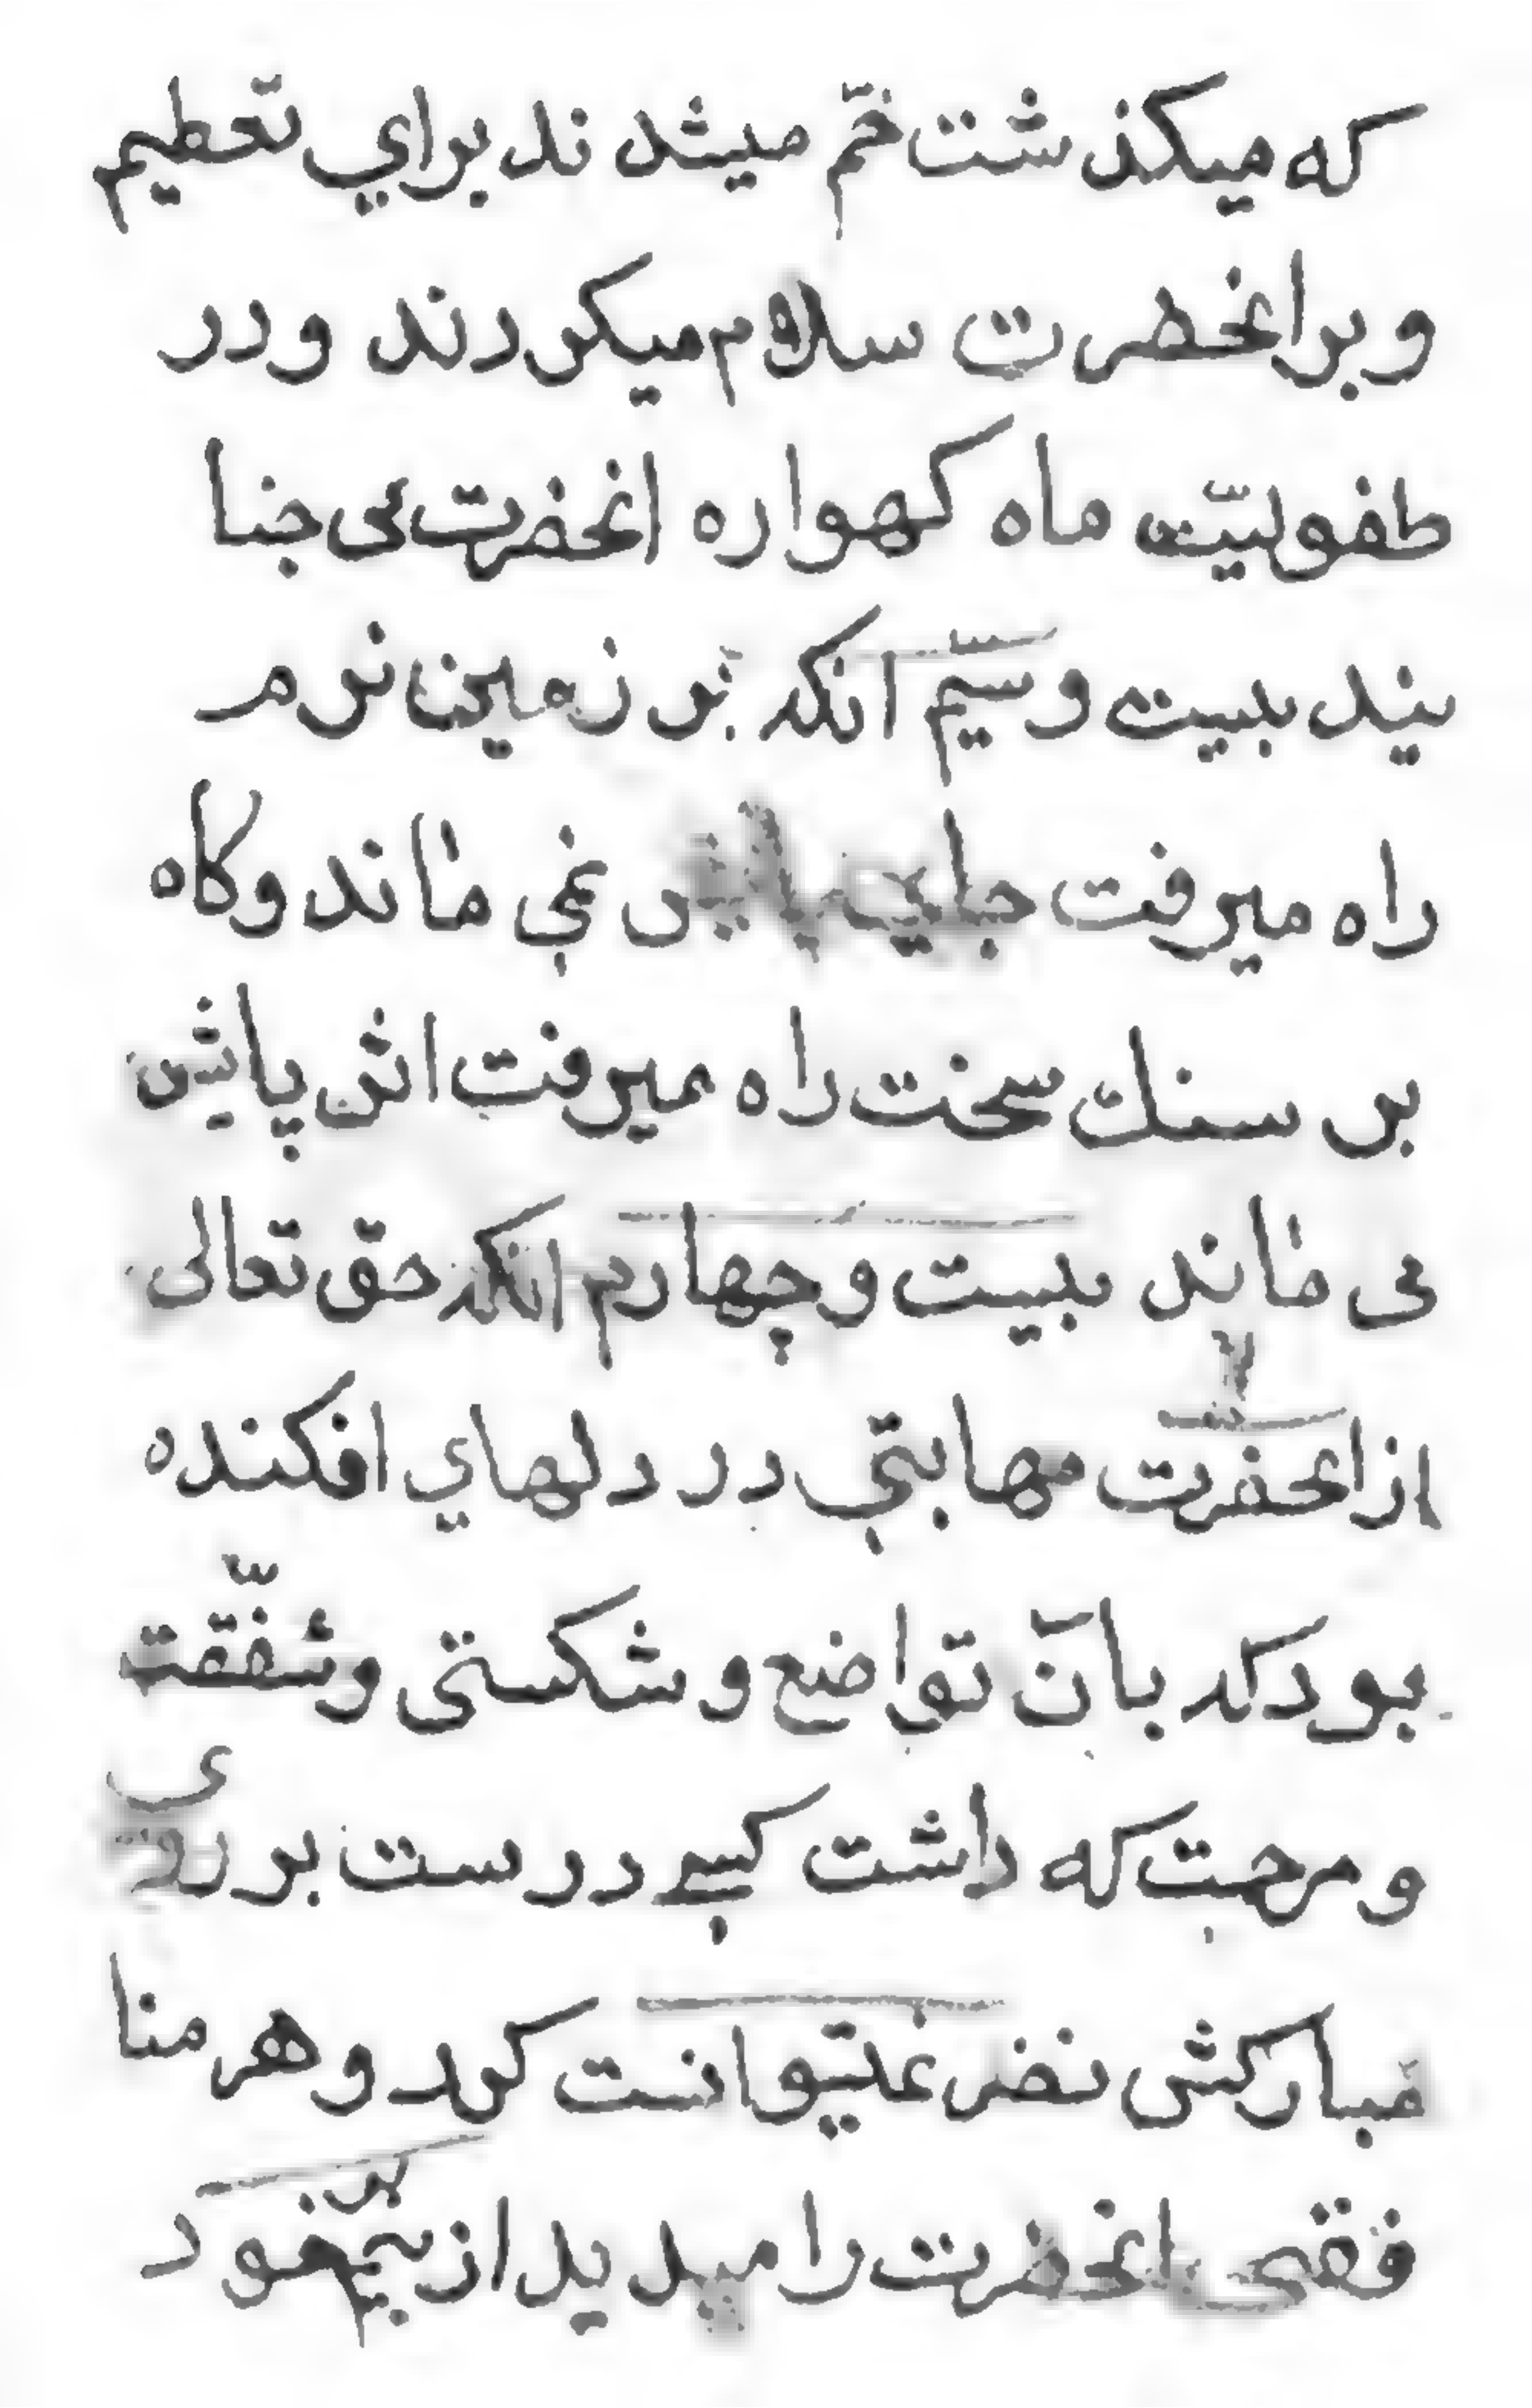 که میکذشت خمّ میشدند برای تعطیم
و برانحضرت سلام میکردند و در
طفولیّت ماه کهواره انحضرت می جنبا
نید بیست و سیّم انکه بر زمین نرم
راه میرفت جای پایش نمی ماند و کاه
بر سنك سخت راه میرفت اثر پایش
می ماند بیست و چهارم انکه حق تعالی
از انحضرت مهابتی در دلهای افکنده
بود که بآن تواضع و شکستی و شفّقت
و مرحمت که داشت کسی درست بر روی
مبارکش نضر نمیتوانست کرد و هر منا
فقی انحضرت را میدید از بیم بر خود